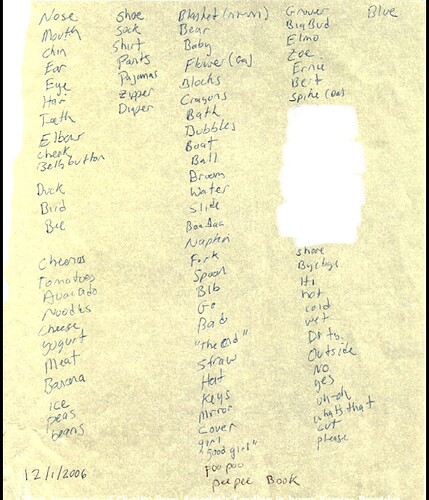 Nose
Mouth
Chin
Ear
Eye
Hair
Teeth
Elbow
cheek
Bellybutton
Duck
Bird
Bee
Cheerios
Tomatoes
Avocado
Noodles
Cheese
yogurt
Meat
Banana
ice
peas
beans
12/1/2006
Shoe
Sock
Shirt
Pants
Pajamas
Zipper
Diaper
Blanket
Bear
Baby
Flower
Blocks
Crayons
Bath
Bubbles
Boat
Ball
Broom
Water
Slide
Napkin
Fork
Spoon
Bib
Go
Bad
"The End"
Straw
Hat
Keys
Mirror
Cover
girl
"good girl"
Poo poo
pee pee Book
Grover
Big Bird
Elmo
Zoe
Ernie
Bert
Spike (Dog)
share
Bye bye
Hi
hot
cold
wet
Dirty
Outside
No
yes
uh-oh
whats that
cut
please
Blue